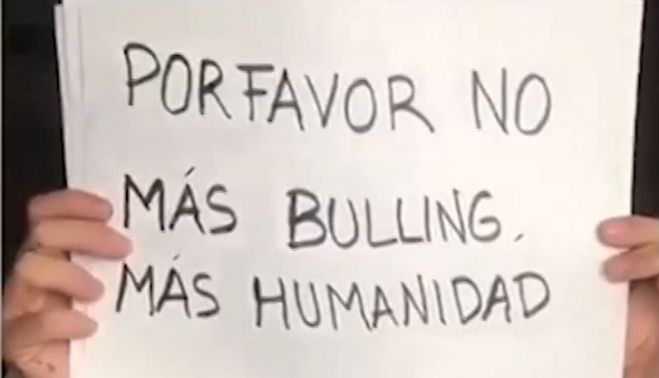 PORFAVOR NO
MÁS BULLING.
MÁS HUMANIDAD